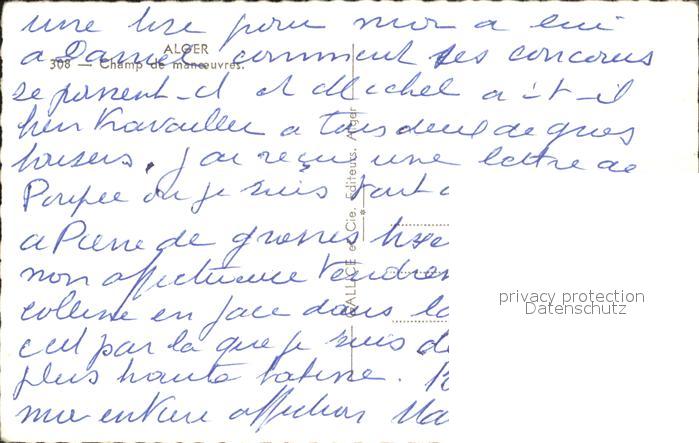 une bise pour moi a lui
a Daniel comment ses concours
ALGER
308 — Champ de manœuvres.
se passent-il et Michel a-t-il
bien travaillé a tous deux de gros
baisers. j'ai reçu une lettre de
Poupée ou je suis tant
a Pierre de grosses bises
mon affectueuse tendres
colline en face dans la
c'est par la que je suis
plus haute batisse.
ma entière affection
ALLICE et Cie. Editeurs. Alger
privacy protection
Datenschutz